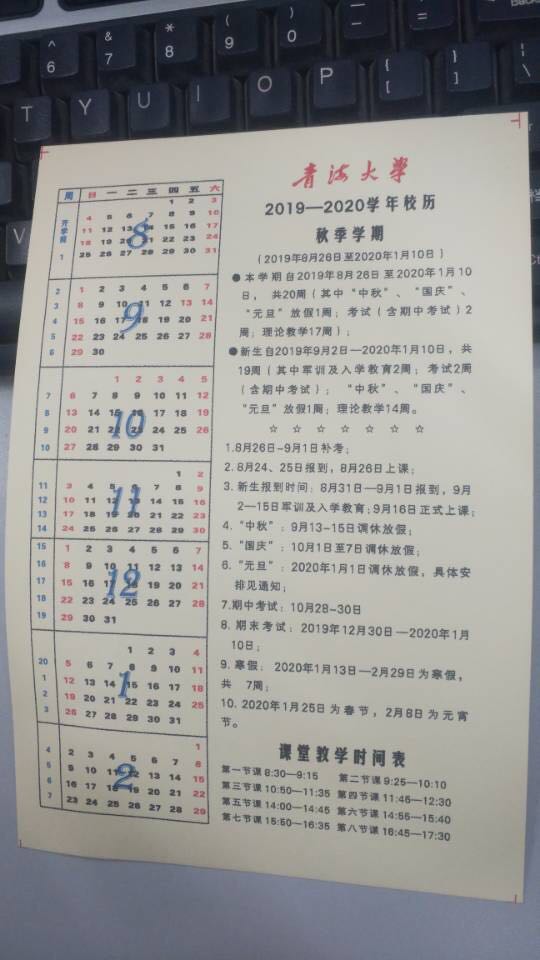 & 7
* 8
( 9
) 0
{ [
} ]
T Y U I O P
青海大學
2019—2020学年校历
秋季学期
(2019年8月26日至2020年1月10日)
●本学期自2019年8月26日至2020年1月10
日,共20周(其中“中秋”、“国庆”、
“元旦”放假1周;考试(含期中考试)2
周;理论教学17周);
●新生自2019年9月2日—2020年1月10日,共
19周(其中军训及入学教育2周;考试2周
(含期中考试);“中秋”、“国庆”、
“元旦”放假1周;理论教学14周。
☆ ☆ ☆ ☆ ☆ ☆ ☆
1.8月26日-9月1日补考;
2.8月24、25日报到,8月26日上课;
3.新生报到时间:8月31日—9月1日报到,9月
2—15日军训及入学教育;9月16日正式上课;
4.“中秋”:9月13-15日调休放假;
5.“国庆”:10月1日至7日调休放假;
6.“元旦”:2020年1月1日调休放假,具体安
排见通知;
7.期中考试:10月28-30日
8.期末考试:2019年12月30日—2020年1月
10日;
9.寒假:2020年1月13日—2月29日为寒假,
共 7周;
10.2020年1月25日为春节,2月8日为元宵
节。
课堂教学时间表
第一节课 8:30—9:15 第二节课 9:25—10:10
第三节课 10:50—11:35 第四节课 11:45—12:30
第五节课 14:00—14:45 第六节课 14:55—15:40
第七节课 15:50—16:35 第八节课 16:45—17:30
周 日 一 二 三 四 五 六
8
1 2 3
开学前 4 5 6 7 8 9 10
11 12 13 14 15 16 17
18 19 20 21 22 23 24
1 25 26 27 28 29 30 31
9
2 1 2 3 4 5 6 7
3 8 9 10 11 12 13 14
4 15 16 17 18 19 20 21
5 22 23 24 25 26 27 28
6 29 30
10
1 2 3 4 5
7 6 7 8 9 10 11 12
8 13 14 15 16 17 18 19
9 20 21 22 23 24 25 26
10 27 28 29 30 31
11
1 2
11 3 4 5 6 7 8 9
12 10 11 12 13 14 15 16
13 17 18 19 20 21 22 23
14 24 25 26 27 28 29 30
12
15 1 2 3 4 5 6 7
16 8 9 10 11 12 13 14
17 15 16 17 18 19 20 21
18 22 23 24 25 26 27 28
19 29 30 31
1
1 2 3 4
20 5 6 7 8 9 10 11
1 12 13 14 15 16 17 18
2 19 20 21 22 23 24 25
3 26 27 28 29 30 31
2
1
4 2 3 4 5 6 7 8
5 9 10 11 12 13 14 15
6 16 17 18 19 20 21 22
7 23 24 25 26 27 28 29